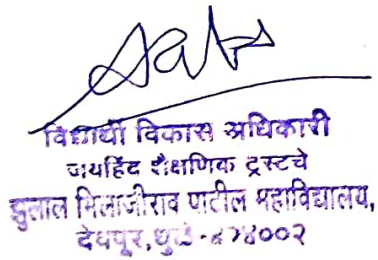 विद्यार्थी विकास अधिकारी
जयहिंद शैक्षणिक ट्रस्टचे
झुलाल भिलाजीराव पाटील महाविद्यालय,
देवपूर,धुळे-४२४००२